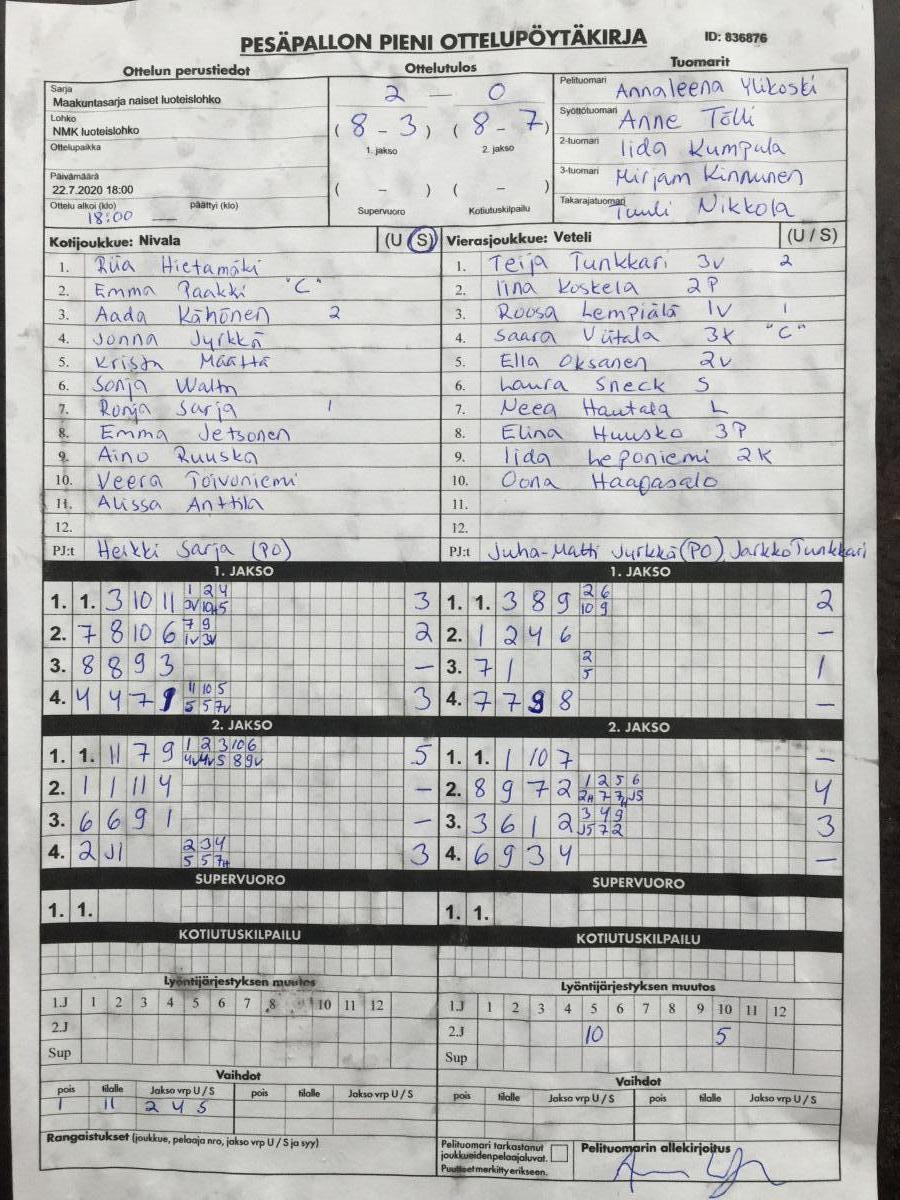 PESÄPALLON PIENI OTTELUPÖYTÄKIRJA ID: 836876
Ottelun perustiedot Ottelutulos Tuomarit
Sarja
Maakuntasarja naiset luoteislohko
Lohko
NMK luoteislohko
Ottelupaikka
Päivämäärä
22.7.2020 18:00
Ottelu alkoi (klo) päättyi (klo)
18:00 —
2 — 0
(8 - 3) (8 - 7)
1. jakso 2. jakso
( - ) ( - )
Supervuoro Kotiutuskilpailu
Pelituomari Annaleena Ylikoski
Syöttötuomari Anne Tölli
2-tuomari Iida Kumpula
3-tuomari Mirjam Kinnunen
Takarajatuomari Tuuli Nikkola
Kotijoukkue: Nivala (U S)
1. Riia Hietamäki
2. Emma Paakki "C"
3. Aada Kähönen 2
4. Jonna Jyrkkä
5. Krista Määttä
6. Sonja
7. Ronja Sarja 1
8. Emma Jetsonen
9. Aino Ruuska
10. Veera Toivoniemi
11. Alissa Anttila
12.
PJ:t Heikki Sarja (PO)
Vierasjoukkue: Veteli (U / S)
1. Teija Tunkkari 3v 2
2. Iina Koskela 2P
3. Roosa Lempiälä 1v 1
4. Saara Viitala 3k "C"
5. Ella Oksanen 2v
6. Laura Sneck S
7. Neea Hautala L
8. Elina Huusko 3P
9. Iida Leponiemi 2K
10. Oona Haapasalo
11.
12.
PJ:t Juha-Matti Jyrkkä (PO), Jarkko Tunkkari
1. JAKSO
1. 1. 3 10 11 1 2 4 3
2. 7 8 10 6 7 9 2
1v 3v
3. 8 8 9 3 —
4. 4 4 7 11 10 5 3
5 5 7v
1. JAKSO
1. 1. 3 8 9 2 6 2
10 9
2. 1 2 4 6 —
3. 7 1 2 1
5
4. 7 7 9 8 —
2. JAKSO
1. 1. 11 7 9 1 2 3 10 6 5
4v 4v 5 8 9v
2. 1 1 11 4 —
3. 6 6 9 1 —
4. 2 J1 2 3 4 3
5 5 7H
2. JAKSO
1. 1. 1 10 7 —
2. 8 9 7 2 1 2 5 6 4
2H 7 7H J5
3. 3 6 1 2 3 4 9 3
J5 7 2
4. 6 9 3 4 —
SUPERVUORO
1. 1.
SUPERVUORO
1. 1.
KOTIUTUSKILPAILU
KOTIUTUSKILPAILU
Lyöntijärjestyksen muutos
1.J 1 2 3 4 5 6 7 8 9 10 11 12
2.J
Sup
Lyöntijärjestyksen muutos
1.J 1 2 3 4 5 6 7 8 9 10 11 12
2.J 10 5
Sup
Vaihdot
pois tilalle Jakso vrp U / S pois tilalle Jakso vrp U / S
1 11 2 4 S
Vaihdot
pois tilalle Jakso vrp U / S pois tilalle Jakso vrp U / S
Rangaistukset (joukkue, pelaaja nro, jakso vrp U / S ja syy)
Pelituomari tarkastanut
joukkueiden pelaajaluvat.
Puutteet merkitty erikseen.
Pelituomarin allekirjoitus